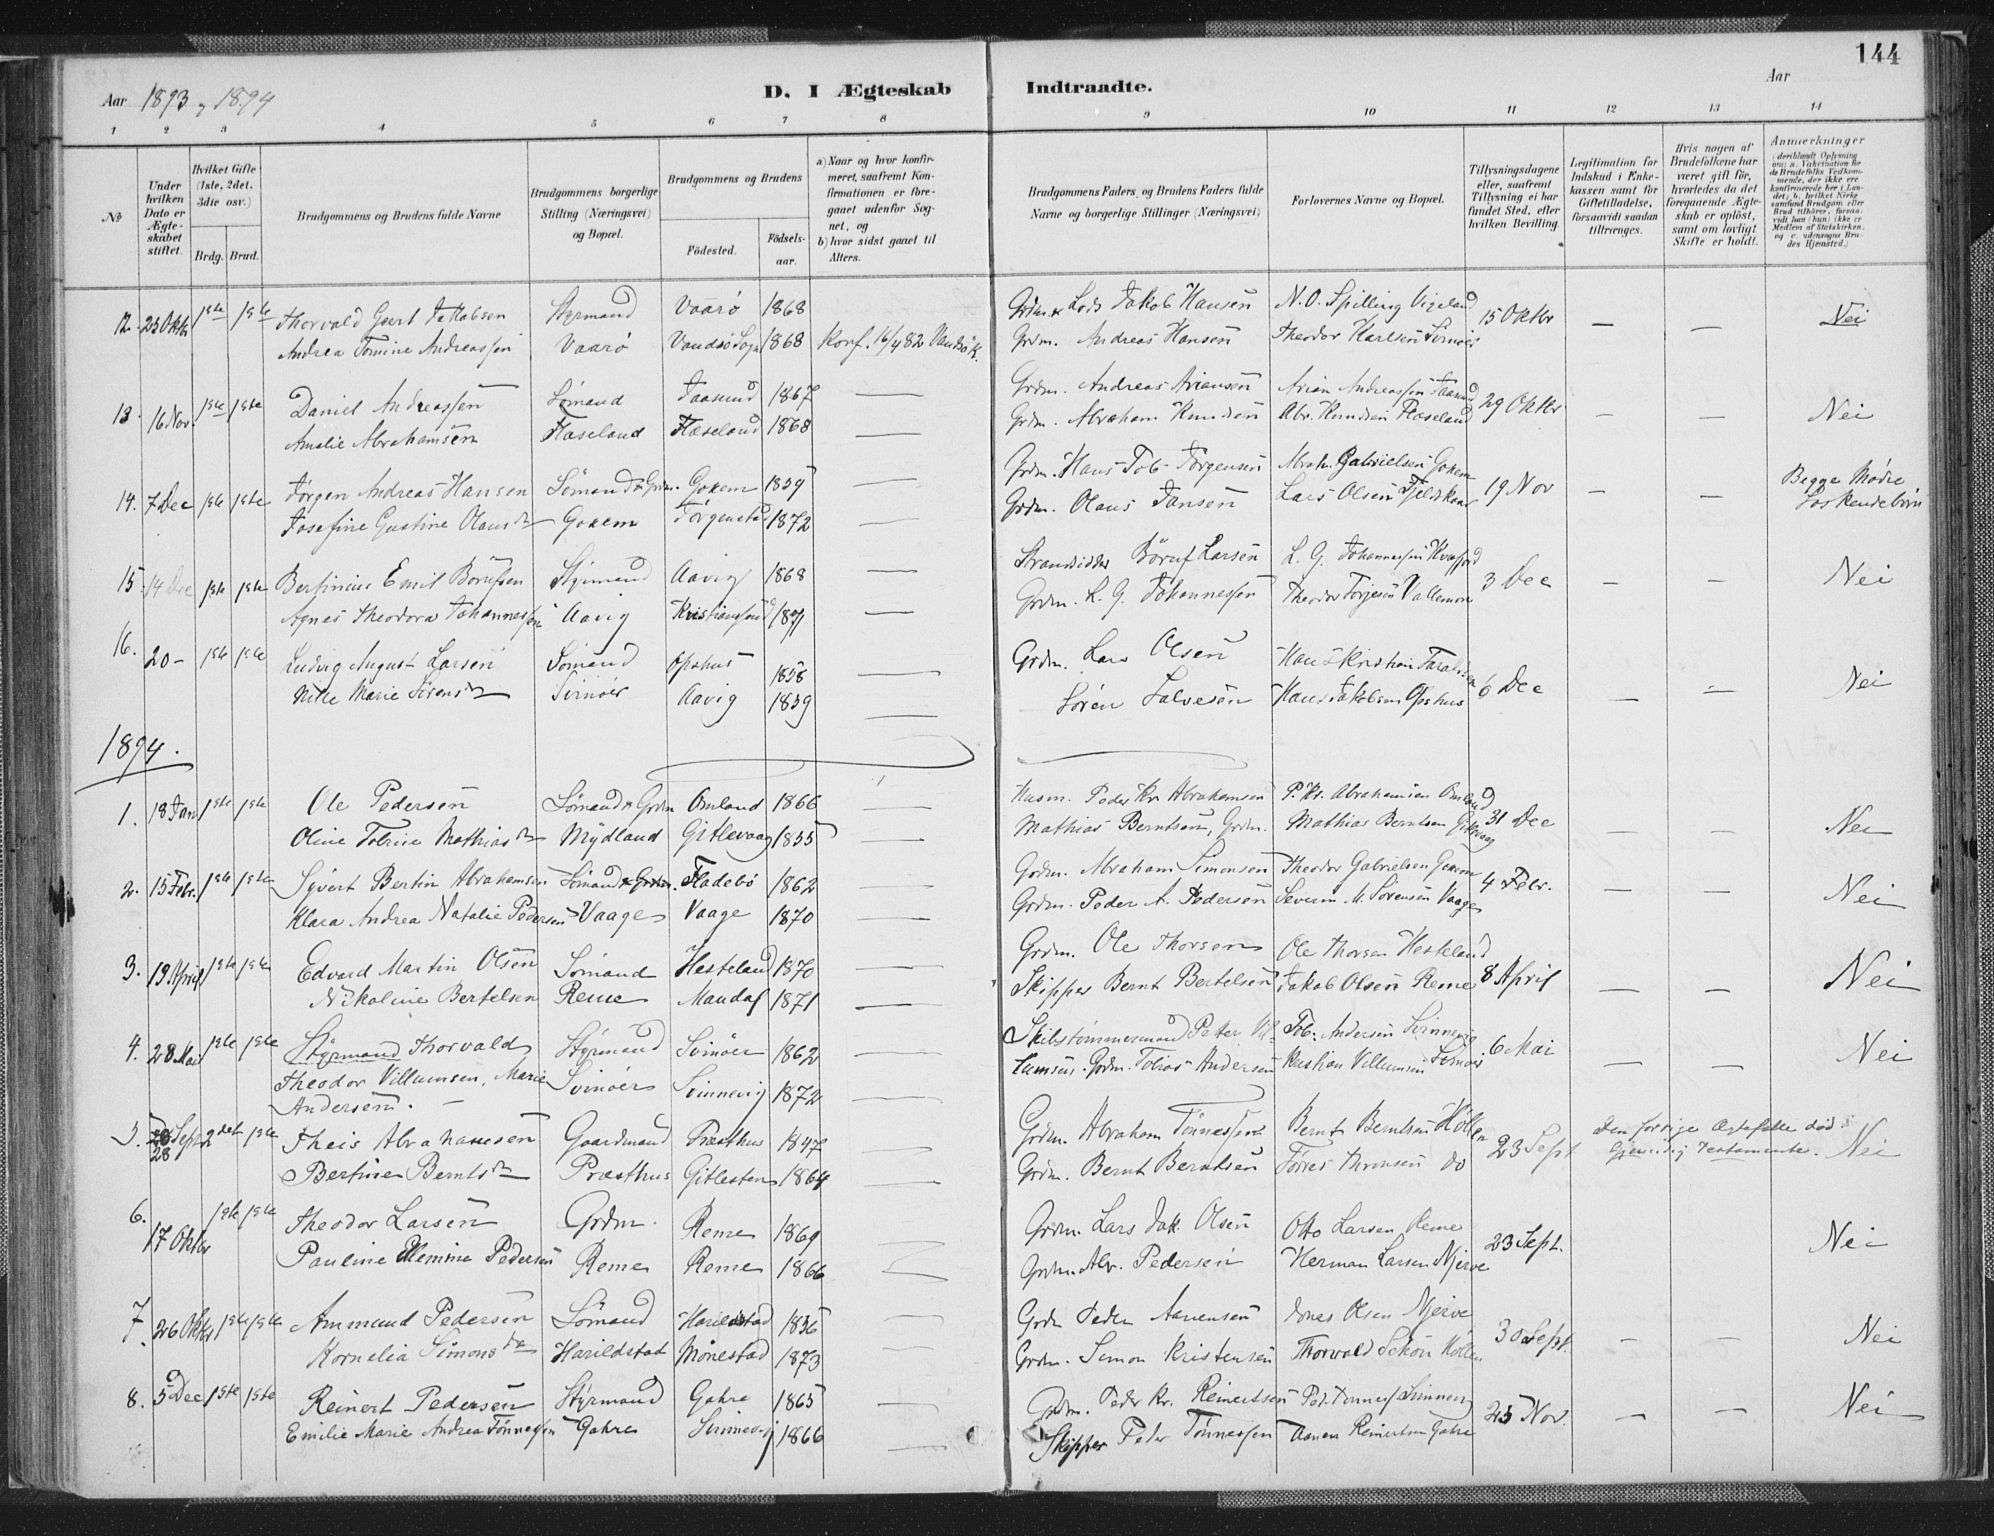 144
Aar 1893 & 1894 D. I Ægteskab Indtraadte. Aar
1 2 3 4 5 6 7 8 9 10 11 12 13 14
№
Under hvilken Dato er Ægteskabet stiftet.
Hvilket Gifte (1ste, 2det, 3die osv.)
Brdg. Brud.
Brudgommens og Brudens fulde Navne
Brudgommens borgerlige Stilling (Næringsvei) og Bopæl.
Brudgommens og Brudens
Fødested. Fødselsaar.
a) Naar og hvor konfirmeret, saafremt Konfirmationen er foregaaet udenfor Sognet, og
b) hvor sidst gaaet til Alters.
Brudgommens Faders og Brudens Faders fulde Navne og borgerlige Stillinger (Næringsvei)
Forlovernes Navne og Bopæl.
Tillysningsdagene eller, saafremt Tillysning ei har fundet Sted, efter hvilken Bevilling.
Legitimation for Indskud i Enkekassen samt for Giftetilladelse, forsaavidt saadan tiltrænges.
Hvis nogen af Brudefolkene har været gift før, hvorledes da det foregaaende Ægteskab er opløst, samt om lovligt Skifte er holdt.
Anmærkninger (deriblandt Oplysning om: a. Vaccination for de Brudefolks Vedkommende, der ikke ere konfirmerede her i Landet; b. hvilket Kirkesamfund Brudgom eller Brud tilhører, forsaavidt han (hun) ikke er Medlem af Statskirken, og c. udensogns Brudes Hjemsted.)
12. 25 Oktbr 1ste 1ste Thorvald Geert Jakobsen Styrmand Vaarø 1868 Grdm. & Lods Jakob Hansen N. O. Spilling Vigeland 15 Oktbr — — Nei
Andrea Tomine Andreassen Vaarø Vandsø Sogn 1868 Konf. 16/4 82 Vandsø K. Grdm. Andreas Hansen Theodor Karlsen Svinøer
13. 16 Nov. 1ste 1ste Daniel Andreassen Sømand Faasund 1867 — Grdm. Andreas Ariansen Arian Andreassen 29 Oktbr — — Nei
Amalie Abrahamsen Flaseland Flaseland 1868 — Grdm. Abraham Knudsen Abr. Knudsen Flaseland
14. 7 Dec 1ste 1ste Jørgen Andreas Hansen Sømand & Grdm. Goxem 1859 — Grdm. Hans Tob. Jørgensen Abrah. Gabrielsen Goxem 19 Nov — — Begge Mødre Søskendebørn
Josefine Gustine Olausdtr Goxem Jørgenstad 1872 — Grdm. Olaus Jansen Lars Olsen Fjeldskaar
15. 14 Dec 1ste 1ste Bertinius Emil Børufsen Styrmand Aavig 1868 — Strandsidder Børuf Larsen L. G. Johannessen 3 Dec — — Nei
Agnes Theodora Johannessen Aavig Kristianssund 1871 — Grdm. L. G. Johannessen Theodor Torjesen Vallemon
16. 20 – 1ste 1ste Ludvig August Larsen Sømand Opshus 1858 — Grdm. Lars Olsen Hans Kristian Taraldsen 6 Dec — — Nei
Nille Marie Sørensdtr Svinøer Aavig 1859 — Søren Salvesen Hans Jakobsen Opshus
1894.
1. 18 Jan 1ste 1ste Ole Pedersen Sømand & Grdm Omland 1866 — Husm. Peder Kr. Abrahamsen P. Kr. Abrahamsen Omland 31 Dec — — Nei
Oline Tobine Mathiasdtr Mydland Gitlevaag 1855 — Mathias Berntsen, Grdm. Mathias Berntsen Gitlevaag
2. 15 Febr. 1ste 1ste Syvert Bertin Abrahamsen Sømand & Grdm. Fladebø 1862 — Grdm. Abraham Simonsen Theodor Gabrielsen Goxem 4 Febr. — — Nei
Klara Andrea Natalie Pedersen Vaage Vaage 1870 — Grdm. Peder A. Pedersen Severin M. Sørensen Vaage
3. 19 April 1ste 1ste Edvard Martin Olsen Sømand Hesteland 1870 — Grdm. Ole Thorsen Ole Thorsen Hesteland 8 April — — Nei
Nikoline Bertelsen Reme Mandal 1871 — Skipper Bernt Bertelsen Jakob Olsen Reme
4. 28 Mai 1ste 1ste Styrmand Thorvald Styrmand Svinøer 1862 — Skibstømmermand Petter Vil- Tob. Andersen Svinnevig 6 Mai — — Nei
Theodor Villumsen, Marie Svinøer Svinnevig 1872 — lumsen. Grdm. Tobias Andersen Kristian Villumsen Svinøer
Andersen. —
5. 28 Sept 2det 1ste Theis Abrahamsen Gaardmand Præsthus 1847 — Grdm. Abraham Tønnessen Bernt Berntsen Høllen 23 Sept Den forrige Ægtefælle død. Nei
Bertine Berntsdtr Præsthus Gitlesten 1864 — Grdm. Bernt Berntsen Tørres Aronsen do Gjensidig Testamente.
6. 17 Oktbr 1ste 1ste Theodor Larsen Grdm. Reme 1869 — Grdm. Lars Jak. Olsen Otto Larsen Reme 23 Sept. Nei
Pauline Pedersen Reme Reme 1866 — Grdm. Abr. Pedersen Herman Larsen Njerve
7. 26 Oktbr 1ste 1ste Ammund Pedersen Sømand Harildstad 1856 — Grdm Peder Aanensen Jonas Olsen Njerve 30 Sept. — — Nei
Kornelia Simonsdtr Harildstad Mønestad 1873 — Grdm. Simon Kristensen Thorvald Schøn Høllen
8. 5 Dec 1ste 1ste Reinert Pedersen Styrmand Gahre 1865 — Grdm. Peder Kr. Reinertsen Ped. Tønnes. Svinnevig 25 Nov. — — Nei
Emilie Marie Andrea Tønnessen Gahre Svinnevig 1866 — Skipper Peder Tønnessen Aanen Reinertsen Gahre